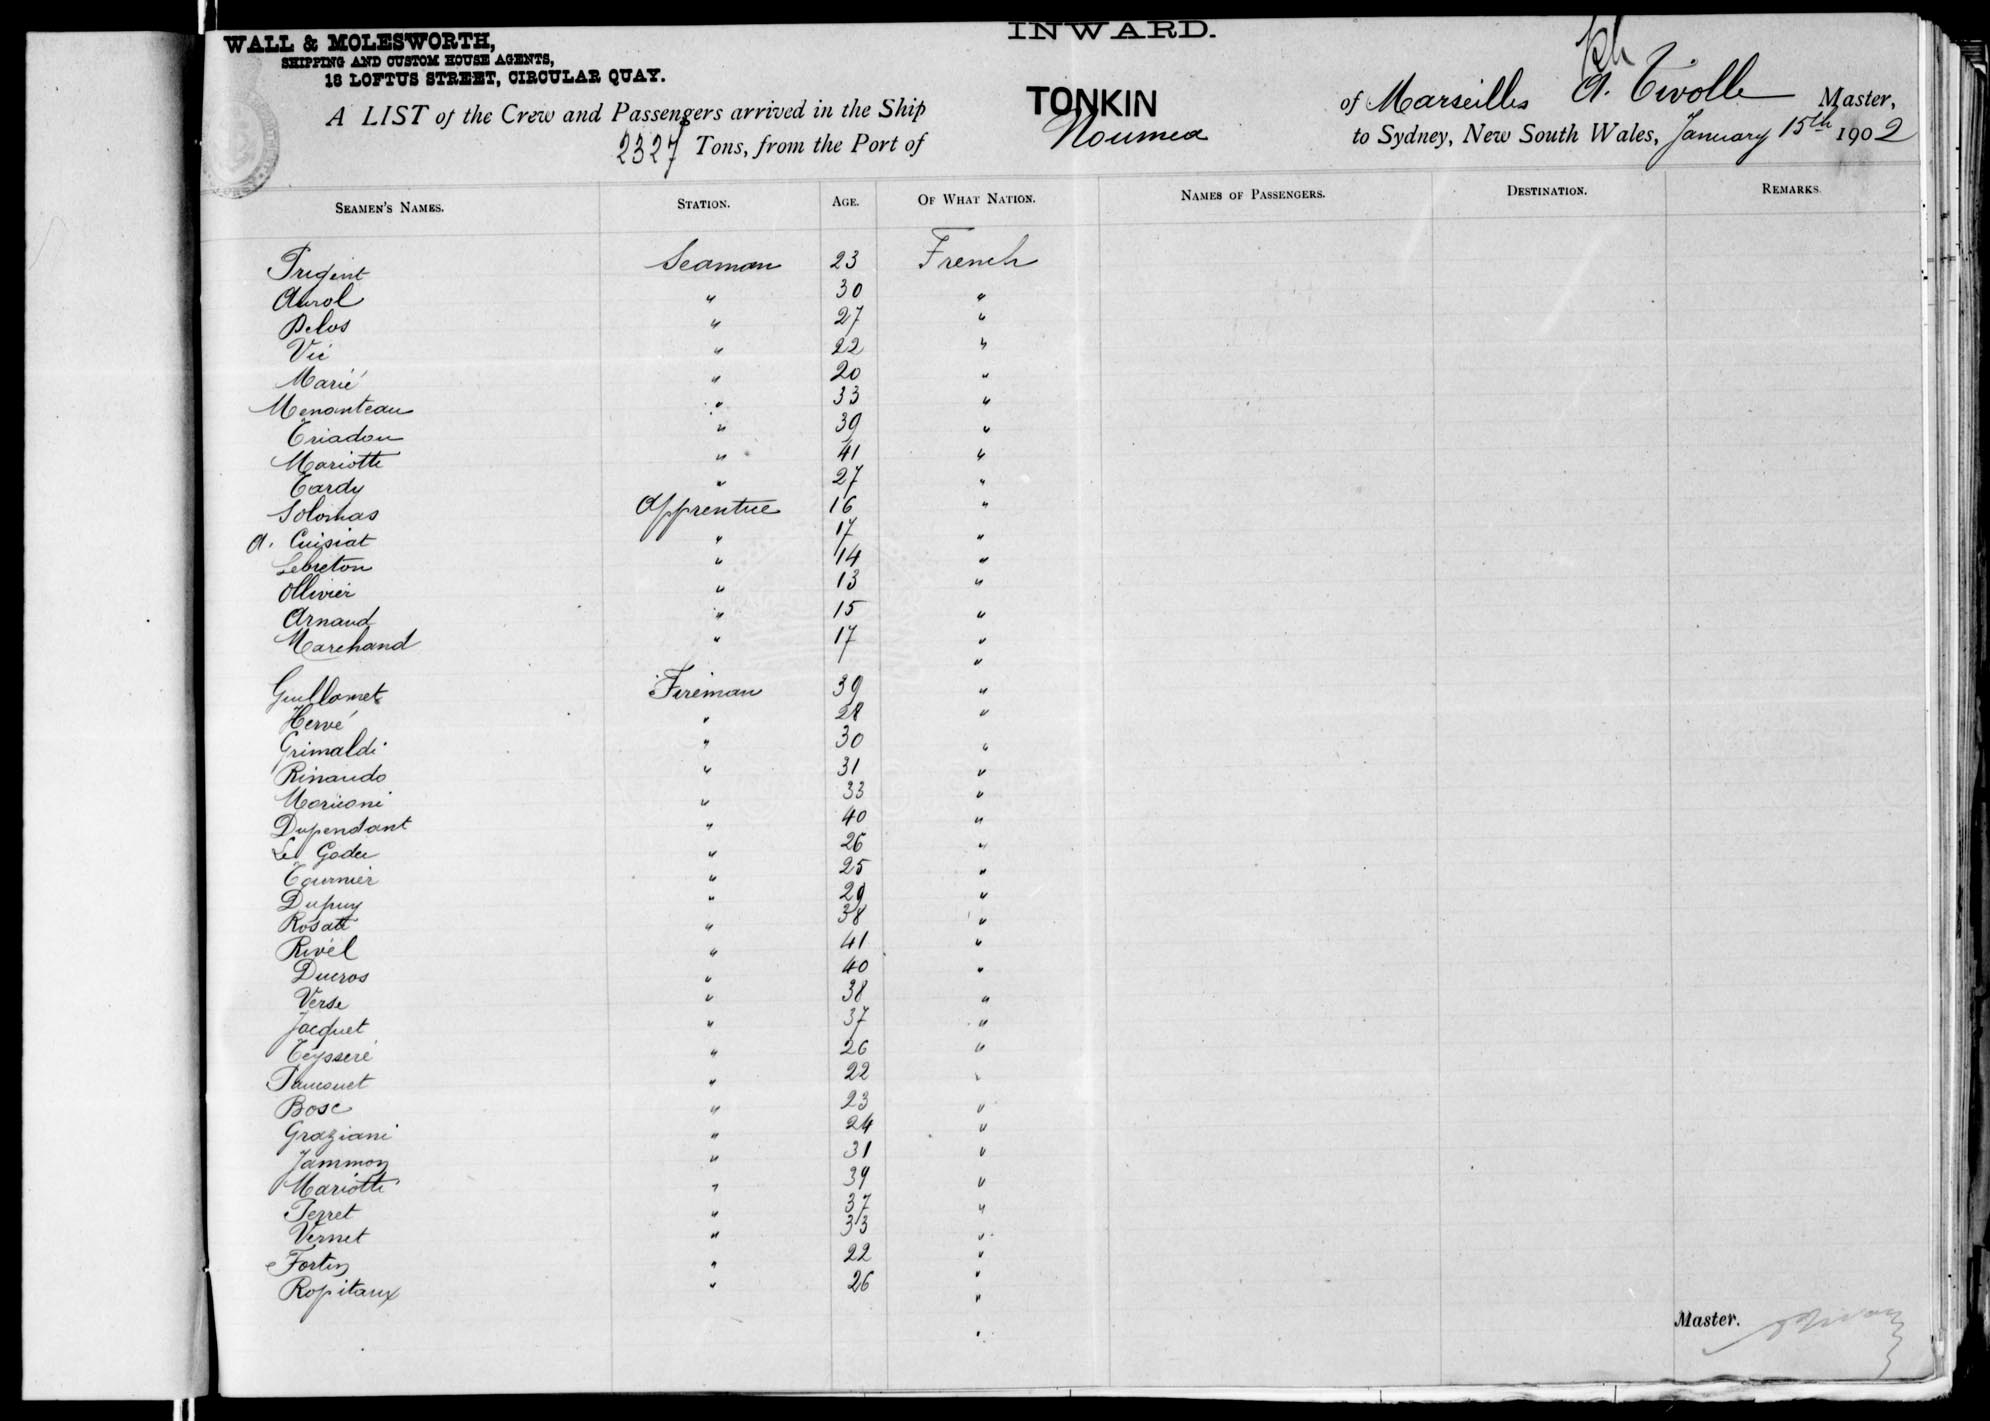 INWARD.
WALL & MOLESWORTH,
SHIPPING AND CUSTOM HOUSE AGENTS,
18 LOFTUS STREET, CIRCULAR QUAY.
A LIST of the Crew and Passengers arrived in the Ship TONKIN of Marseilles Master,
2327 Tons, from the Port of Noumea to Sydney, New South Wales, January 15th 1902
SEAMEN'S NAMES. STATION. AGE. OF WHAT NATION. NAMES OF PASSENGERS. DESTINATION. REMARKS
Prigent Seaman 23 French
Aurol " 30 "
Delos " 27 "
Vié " 22 "
Marié " 20 "
Menanteau " 33 "
Triadou " 39 "
Mariotti " 41 "
Tardy " 27 "
Solomas Apprentice 16 "
A. Cuisiat " 17 "
Lebreton " 14 "
Ollivier " 13 "
Arnaud " 15 "
Marchand " 17 "
"
Guillomet Fireman 39 "
Hervé " 28 "
Grimaldi " 30 "
Rinaudo " 31 "
Marcioni " 33 "
Dupendant " 40 "
Le Gadec " 26 "
Tournier " 25 "
Dupuy " 29 "
Rosatti " 38 "
Rivél " 41 "
Ducros " 40 "
Verse " 38 "
Jacquet " 37 "
Teysseré " 26 "
" 22 "
Bosc " 23 "
Graziani " 24 "
Jammon " 31 "
Mariotti " 39 "
Perret " 37 "
Vernet " 33 "
Fortin " 22 "
Ropitaux " 26 "
"
Master.